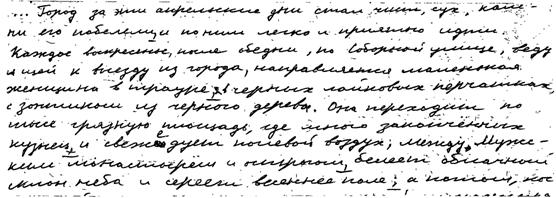 ... Город за эти апрельские дни стал чист, сух, кам-
ни его побелели и по ним легко и приятно идти.
Каждое воскресенье, после обедни, по Соборной улице, веду
щей к выезду из города, направляется маленькая
женщина в трауре, в черных лайковых перчатках,
с зонтиком из черного дерева. Она переходит по
шоссе грязную площадь, где много закопченных
кузнец и свеже дует полевой воздух; между Мужс-
ким монастырем и острогом, белеет облачный
склон неба и сереет весеннее поле; а потом,